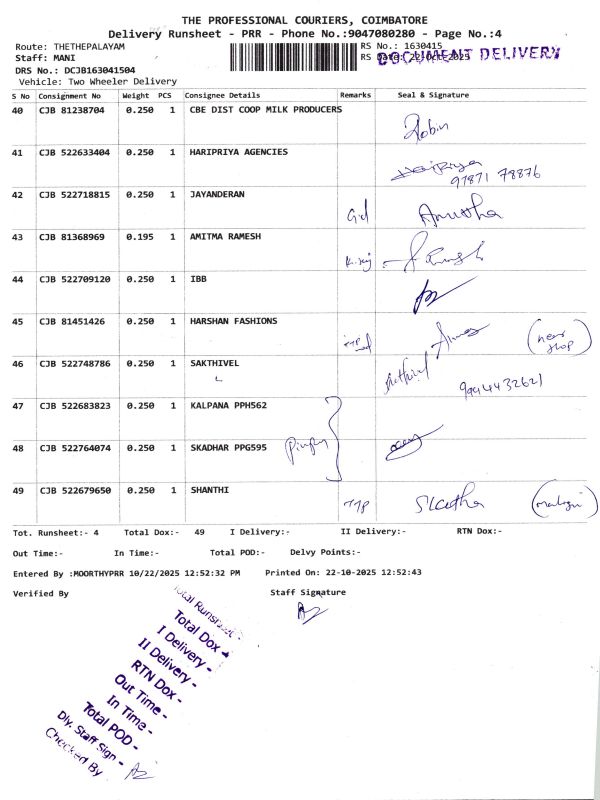 THE PROFESSIONAL COURIERS, COIMBATORE
Delivery Runsheet - PRR - Phone No.:9047080280 - Page No.:4
Route: THETHEPALAYAM
RS No.: 1630415
Staff: MANI
RS Date: 22-Oct-2025
DOCUMENT DELIVERY
DRS No.: DCJB163041504
Vehicle: Two Wheeler Delivery
S No Consignment No Weight PCS Consignee Details Remarks Seal & Signature
40 CJB 81238704 0.250 1 CBE DIST COOP MILK PRODUCERS Robin
41 CJB 522633404 0.250 1 HARIPRIYA AGENCIES Haripriya
97871 78876
42 CJB 522718815 0.250 1 JAYANDERAN Anuttha
43 CJB 81368969 0.195 1 AMITMA RAMESH
44 CJB 522709120 0.250 1 IBB
45 CJB 81451426 0.250 1 HARSHAN FASHIONS (near shop)
46 CJB 522748786 0.250 1 SAKTHIVEL Sakthivel
9944432621
47 CJB 522683823 0.250 1 KALPANA PPH562
48 CJB 522764074 0.250 1 SKADHAR PPG595
49 CJB 522679650 0.250 1 SHANTHI
Tot. Runsheet:- 4 Total Dox:- 49 I Delivery:- II Delivery:- RTN Dox:-
Out Time:- In Time:- Total POD:- Delvy Points:-
Entered By :MOORTHYPRR 10/22/2025 12:52:32 PM Printed On: 22-10-2025 12:52:43
Verified By Staff Signature
Total Runsheet -
Total Dox -
I Delivery -
II Delivery -
RTN Dox -
Out Time -
In Time -
Total POD -
Dly. Staff Sign -
Checked By